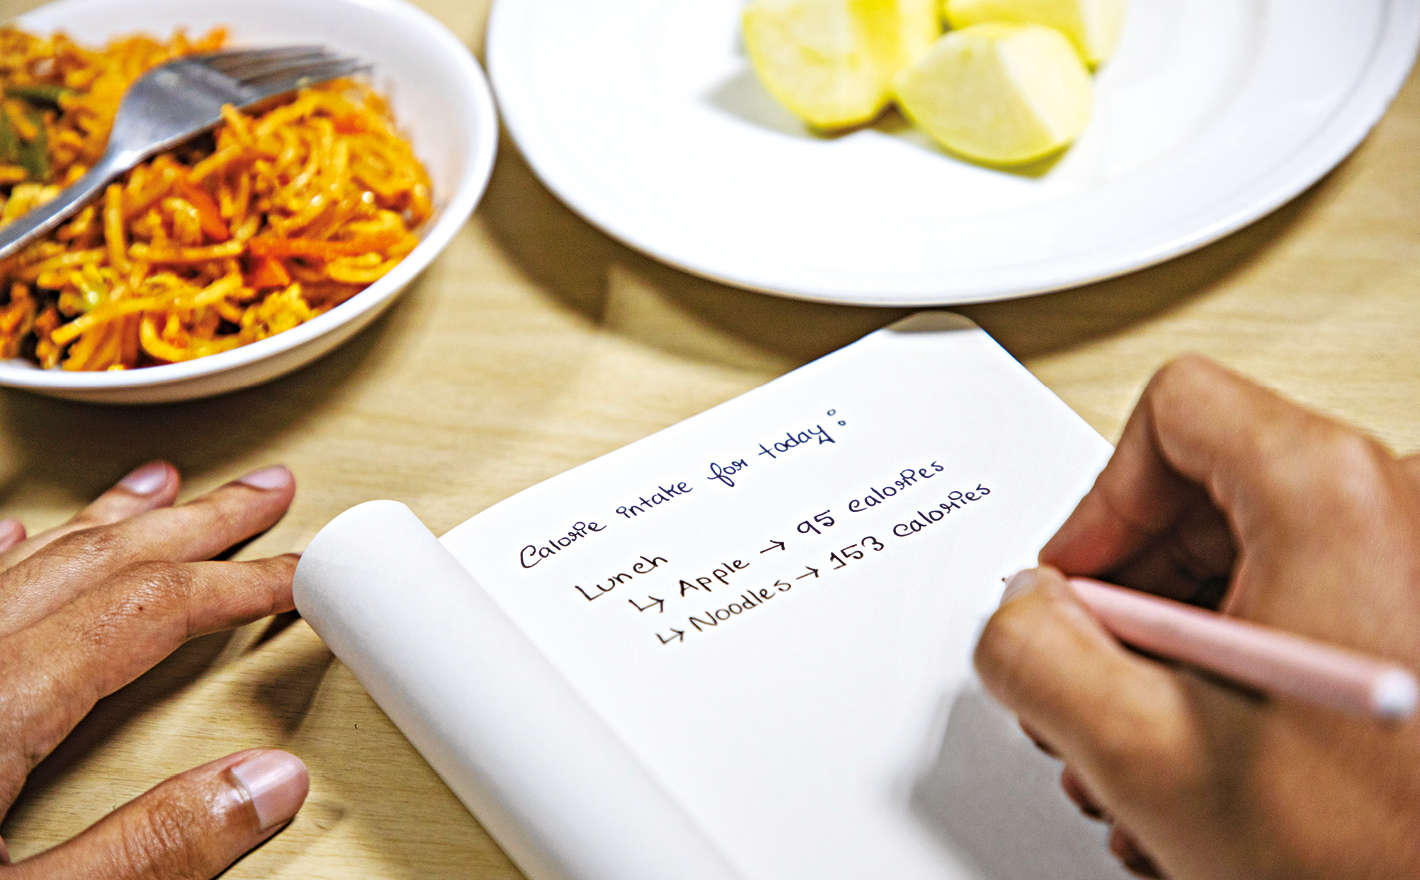 Calorie intake for today:
Lunch
↳ Apple → 95 calories
↳ Noodles → 153 calories